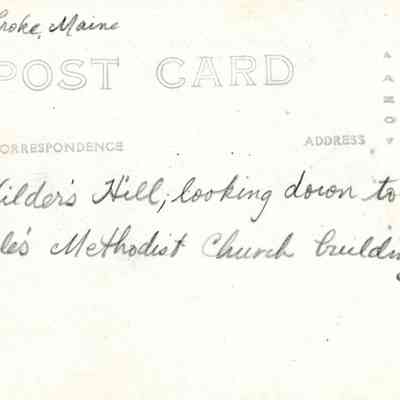 roke, Maine
POST CARD
ORRESPONDENCE
ADDRESS
ilder's Hill, looking down to
le's Methodist Church buildin